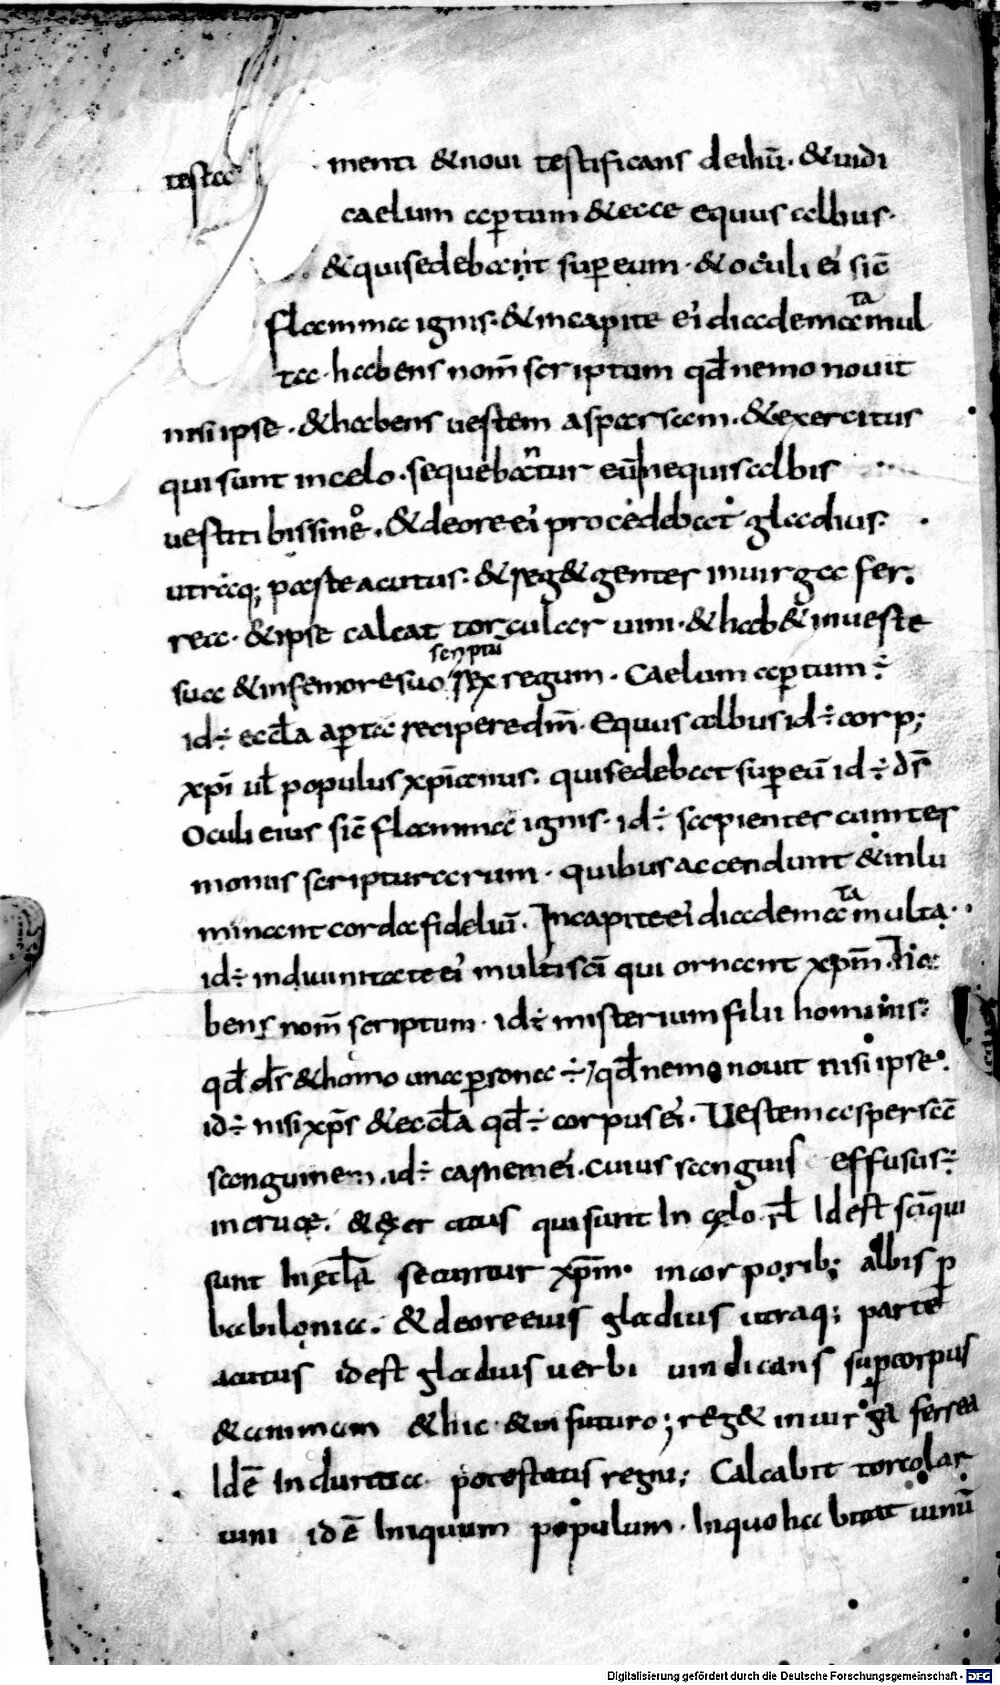 testa menti & noui testificans de ihū. & uidi
caelum ap̱tum & ecce equus albus.
& qui sedebant sup̱ eum. & oculi ei sic̄
flamma ignis. & in capite ei diademata mul
ta. habens nom̄ scriptum qđ nemo nouit
nisi ipse. & habens uestem asparsam. & exercitus
qui sunt in celo. sequebantur eū in equis albis
uestiti bissineo. & de ore ei procedebat gladius
utraq; paste acutus. & reg& gentes in uirga fer
rea. & ipse calcat torcular uini. & hab& in ueste
sua & in femore suo scriptū rex regum. Caelum ap̱tum ÷
id÷ eccła ap̱ta recipere dm̄. Equus albus id÷ corp;
xpī uł populus xpīanus. qui sedebat sup̱ eū id÷ ds̄
Oculi eius sic̄ flamma ignis. id÷ sapientes cum tes
moniis scripturarum. quibus accendunt & inlu
minant corda fideliū. In capite ei diademata multa.
id÷ in diuinitate ei multi scī qui ornant xpm̄. Ha
bens nom̄ scriptum. id÷ misterium filii hominis
qđ ds̄ & homo una p̱sona ÷ qđ nemo nouit nisi ipse.
id÷ nisi xps̄ & eccła qđ÷ corpus ei. Uestem aspersā
sanguinem. id÷ carnem ei. cuius sanguis effusus÷
in cruce. & exercitus qui sunt In cęlo. rł Id est scī qui
sunt In ęcłā secuntur xpm̄. in corporib; albis p̱
babilonia. & de ore eius gladius utraq; parte
acutus id est gladius uerbi uindicans sup̱ corpus
& animam & hic & in futuro; reg& in uirga ferrea
Id ē In duritia potestatis regni; Calcabit torcolar
uini id ē Iniquum populum. In quo habitat uinū
Digitalisierung gefördert durch die Deutsche Forschungsgemeinschaft - DFG